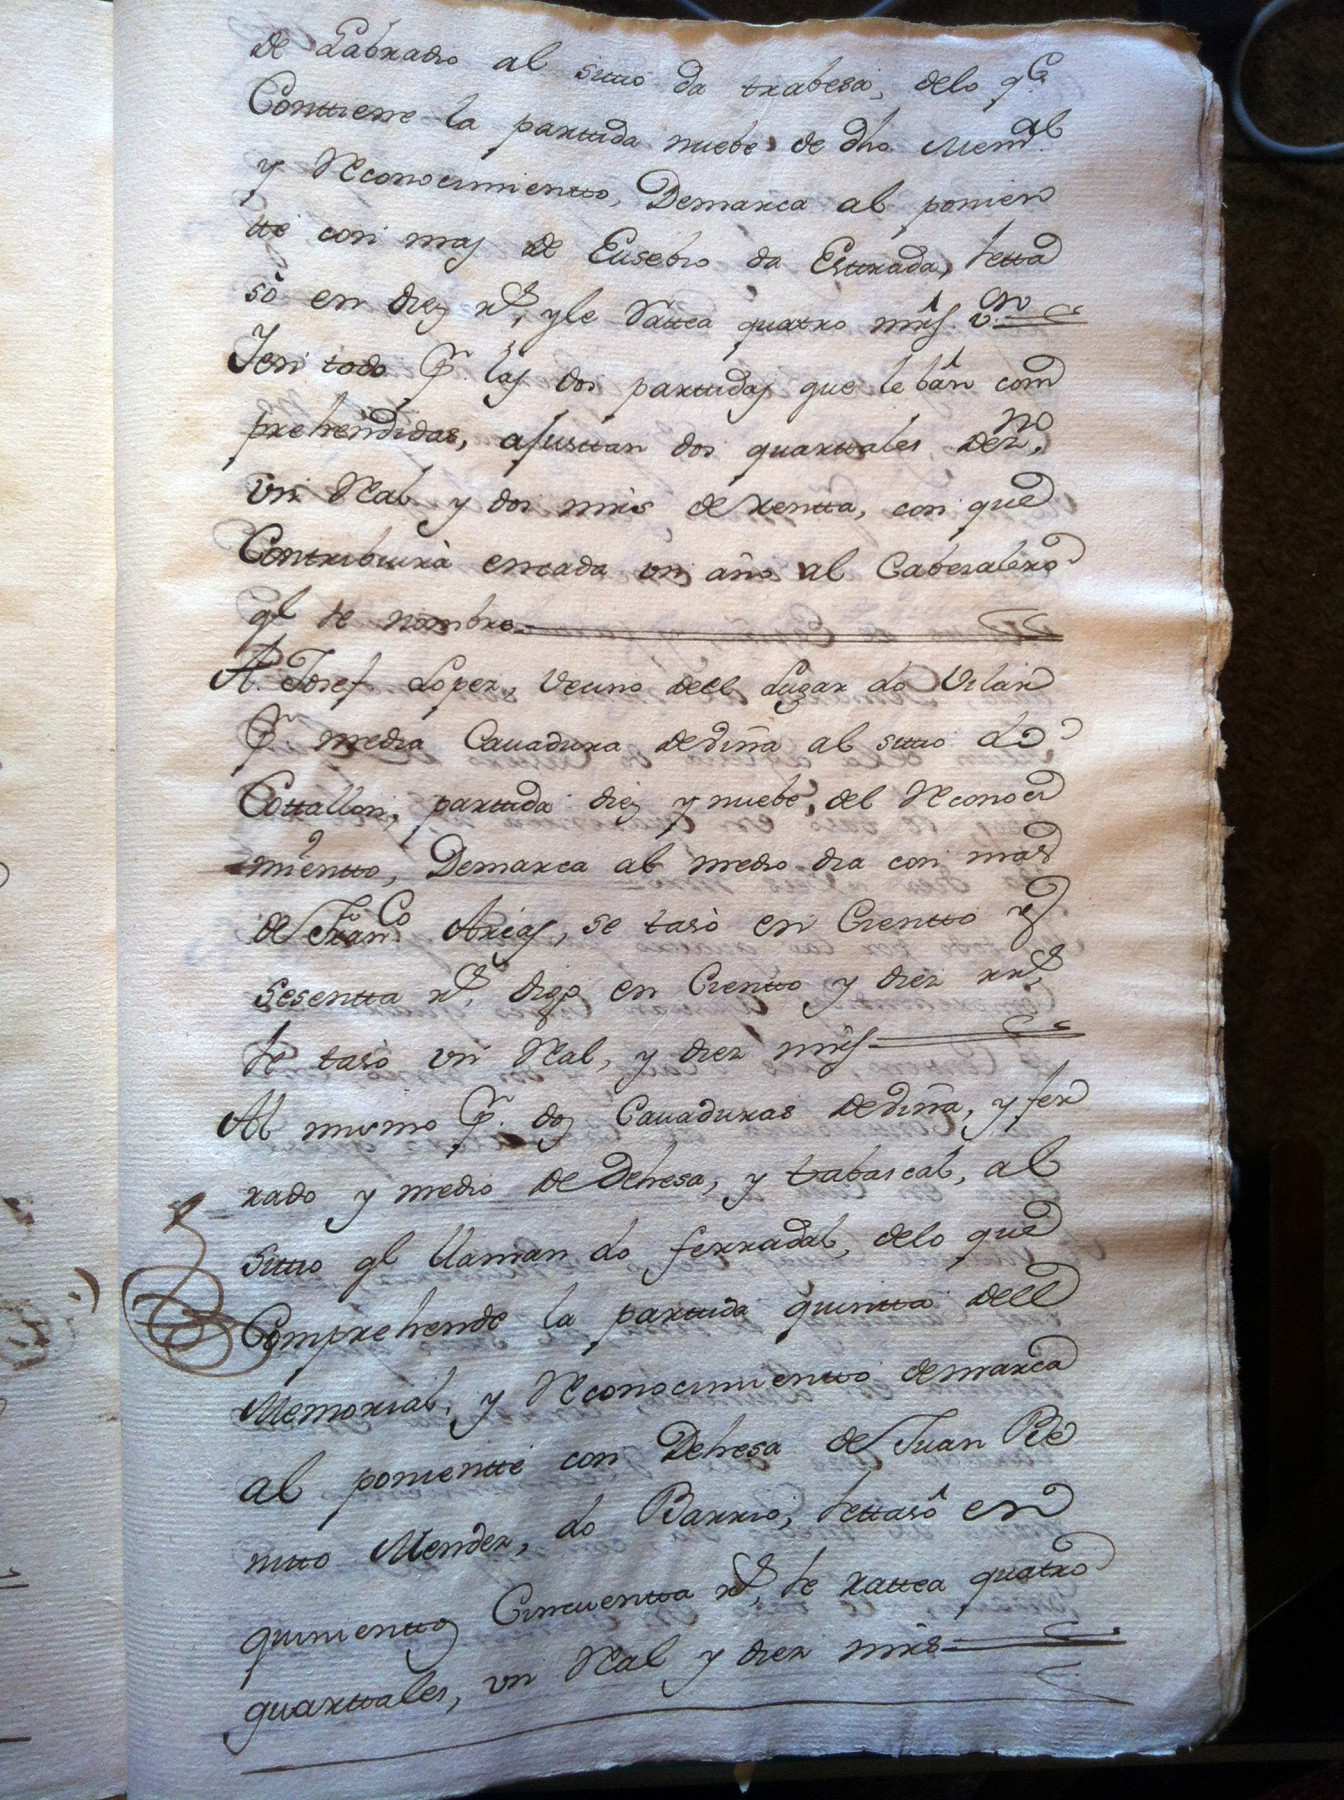 de Labradio al sitio da trabesa, delo q.e
Conttiene la partida nuebe de dho Mem.al
y Rconocimientto, Demarca al ponien
tte con mas de Eusebio da Esttrada, settа
só en diez r.s, y le Rattea quatro mrs v.on
Jen todo P.r las dos partidas que le bán com
prehéndidas, ajusttan dos quarttales dez.no
vn Real y dos mrs de rentta, con que
Conttribuirá encada vn año al Cabezalero
q.l se nombre
A. Josef Lopez, Vecino deel Lugar do Vilar
P.r media Cauadura deviña al sitio do
Cottallon, partida diez y nuebe, del Rconoci
mientto, Demarca al medio dia con mas
de Fran.co Arias, se tasó en Cientto y
sesentta r.s, digo en Cientto y diez rr.s,
se tasó vn Real, y diez mrs
Al mismo P.r dos Cauaduras deviña, y fer
rado y medio de Dehesa, y tabascal, al
sitio q.l llaman do ferradal, delo que
Comprehende la partida quintta deel
Memorial, y Rconocimientto demarca
al ponientte con Dehesa de Juan Be
nitto Mendez, do Barrio, settasó en
quinienttos Cincuentta r.s, se rattea quatro
quarttales, vn Real y diez mrs